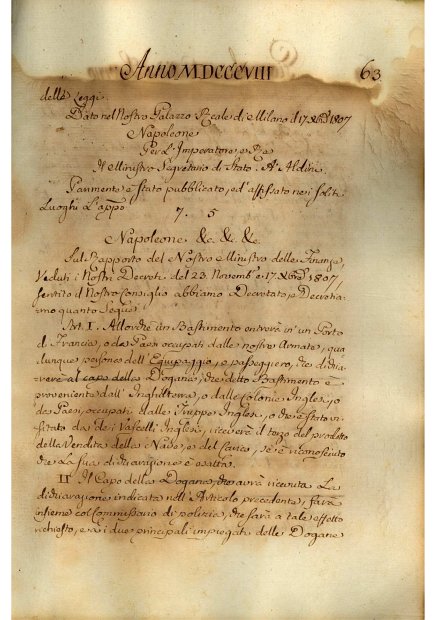 Anno MDCCCVIII 63
delle Leggi.
Dato nel Nostro Palazzo Reale di Milano il 17. Xbre 1807
Napoleone
Per L'Imperatore e Re
Il Ministro Segretario di Stato. A. Aldini
Parimente è stato pubblicato, ed' affissato ne i soliti
Luoghi L'
7. 5
Napoleone &c. &c. &c.
Sul Rapporto del Nostro Ministro delle Finanze,
Veduti i Nostri Decreti del 23. Novembe e 17. Xbre 1807,
sentito il Nostro Consiglio abbiamo Decretato, e Decretia-
mo quanto segue
Art. I. Allorchè un Bastimento entrerà in un Porto
di Francia, o de Paesi occupati dalle nostre Armate, qua-
lunque persona dell' Equipaggio, o passeggiero, che dichia-
rerà al capo della Dogana, che detto Bastimento è
proveniente dall' Inghilterra, o dalle Colonie Inglesi, o
da Paesi, occupati dalle Truppe Inglesi, o che è stato vi-
sitato da de i Vascelli Inglesi, riceverà il terzo del prodotto
della Vendita della Nave, e del Carico, se è riconosciuto
che La sua dichiarazione è esatta.
II. Il Capo della Dogana, che avrà ricevuta La
dichiarazione indicata nell' Articolo precedente, farà
insieme col Commissario di polizia, che sarà a tale effetto
richiesto, e a i due principali impiegati delle Dogane